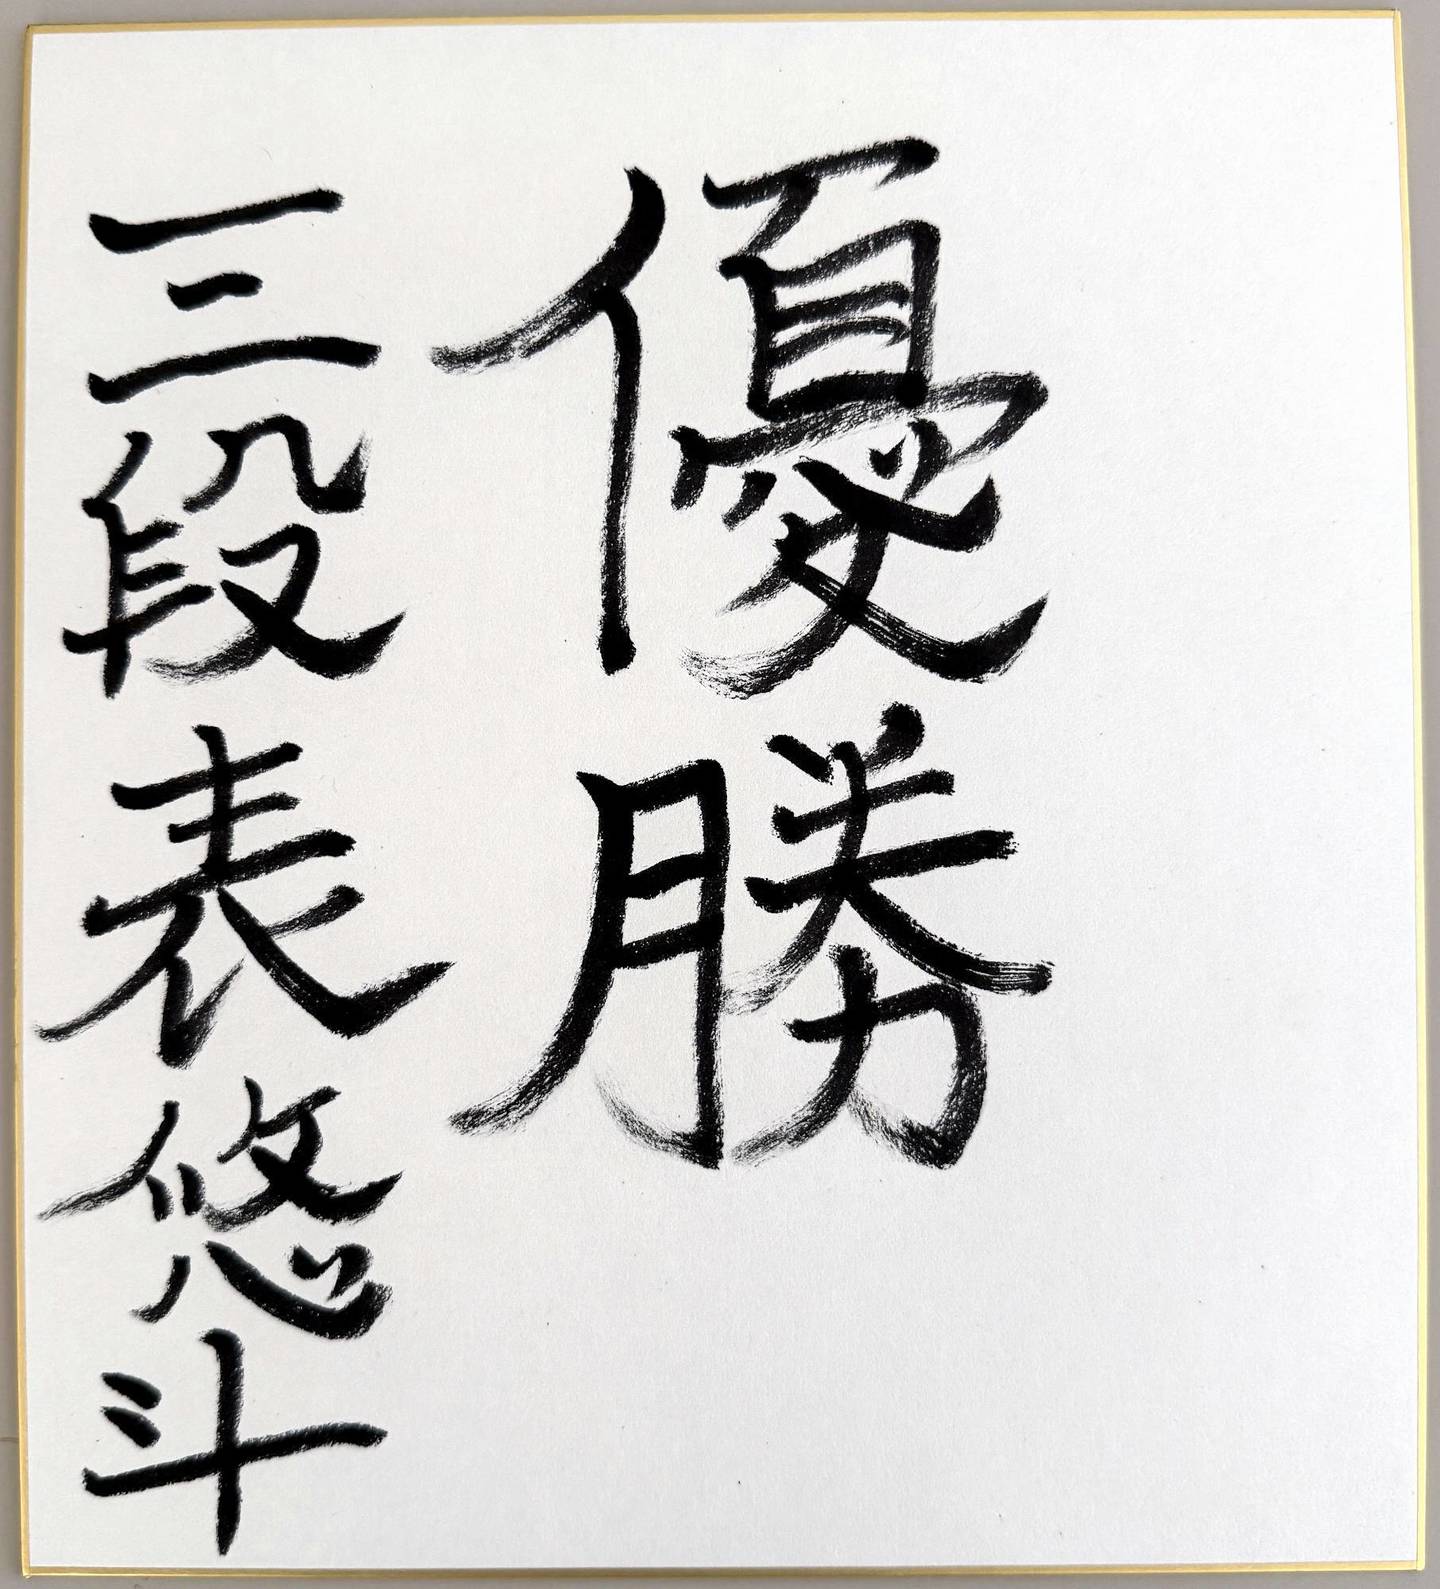 優勝
三段 表悠斗